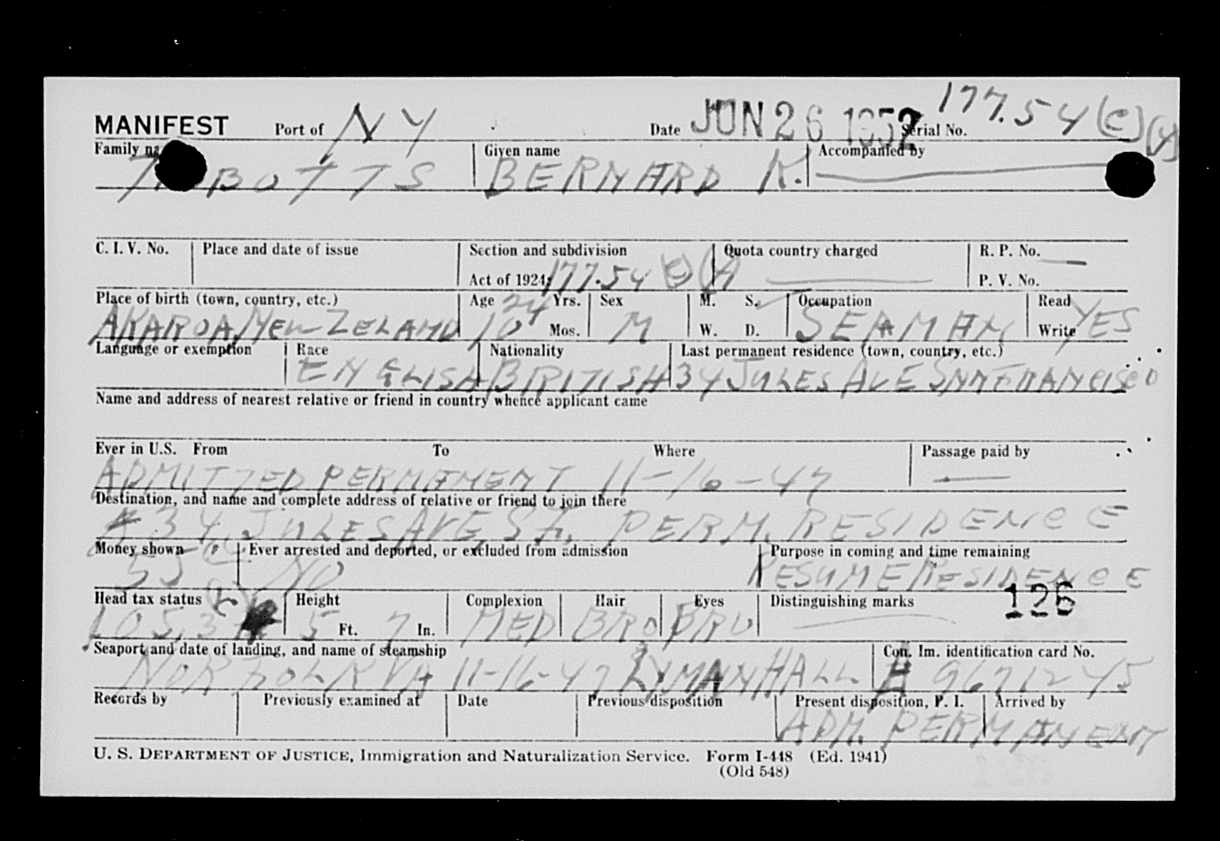 MANIFEST Port of NY Date JUN 26 1952 Serial No. 177.54(c)
Family Given name Accompanied by
BOTTS BERNARD K.
C. I. V. No. Place and date of issue Section and subdivision Quota country charged R. P. No. —
Act of 1924 177.54 P. V. No.
Place of birth (town, country, etc.) Age 24 Yrs. Sex M. S. ✓ Occupation Read YES
AKAROA, NEW ZELAND 10 Mos. M W. D. SEAMAN Write
Language or exemption Race Nationality Last permanent residence (town, country, etc.)
ENGLISH BRITISH 34 JULES AVE SAN FRANCISCO
Name and address of nearest relative or friend in country whence applicant came
Ever in U.S. From To Where Passage paid by
ADMITTED PERMANENT 11-16-47 —
Destination, and name and complete address of relative or friend to join there
#34 JULES AVE, S.F. PERM. RESIDENCE
Money shown Ever arrested and deported, or excluded from admission Purpose in coming and time remaining
55 NO RESUME RESIDENCE
Head tax status Height Complexion Hair Eyes Distinguishing marks 126
105.3 5 Ft. 7 In. MED BRO BRO
Seaport and date of landing, and name of steamship Con. Im. identification card No.
NORFOLK VA 11-16-47 LYMAN HALL # 9671245
Records by Previously examined at Date Previous disposition Present disposition, P. I. Arrived by
ADM. PERMANENT
U. S. DEPARTMENT OF JUSTICE, Immigration and Naturalization Service. Form I-448 (Ed. 1941)
(Old 548)